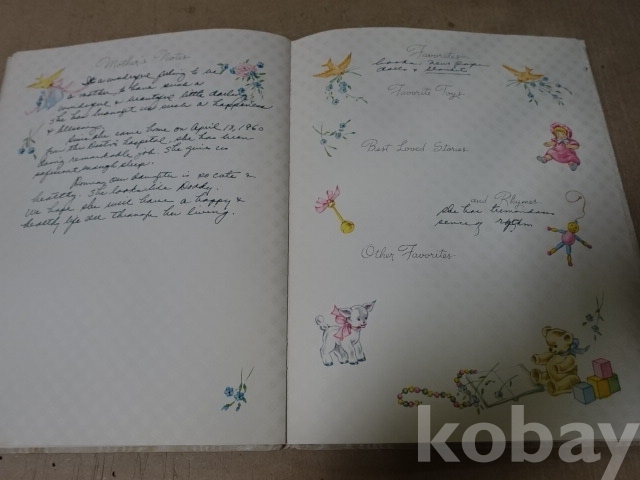 Mother's Notes
It a wonderful feeling to be
a mother to have such a
wonderful & beautiful little darling
She has brought us such a happiness
& blessing.
Since she came home on April 13, 1960
from the Boston hospital, she has been
doing remarkable job. She give us
enough sleep.
Our daughter is so cute &
healthy. She looks like Daddy.
We hope she will have a happy &
healthy life all through her living.
Favorites
books, news paper
dolls & blanket
Favorite Toys
Best Loved Stories
and Rhymes
She has tremendous
sense of rythm
Other Favorites
kobay